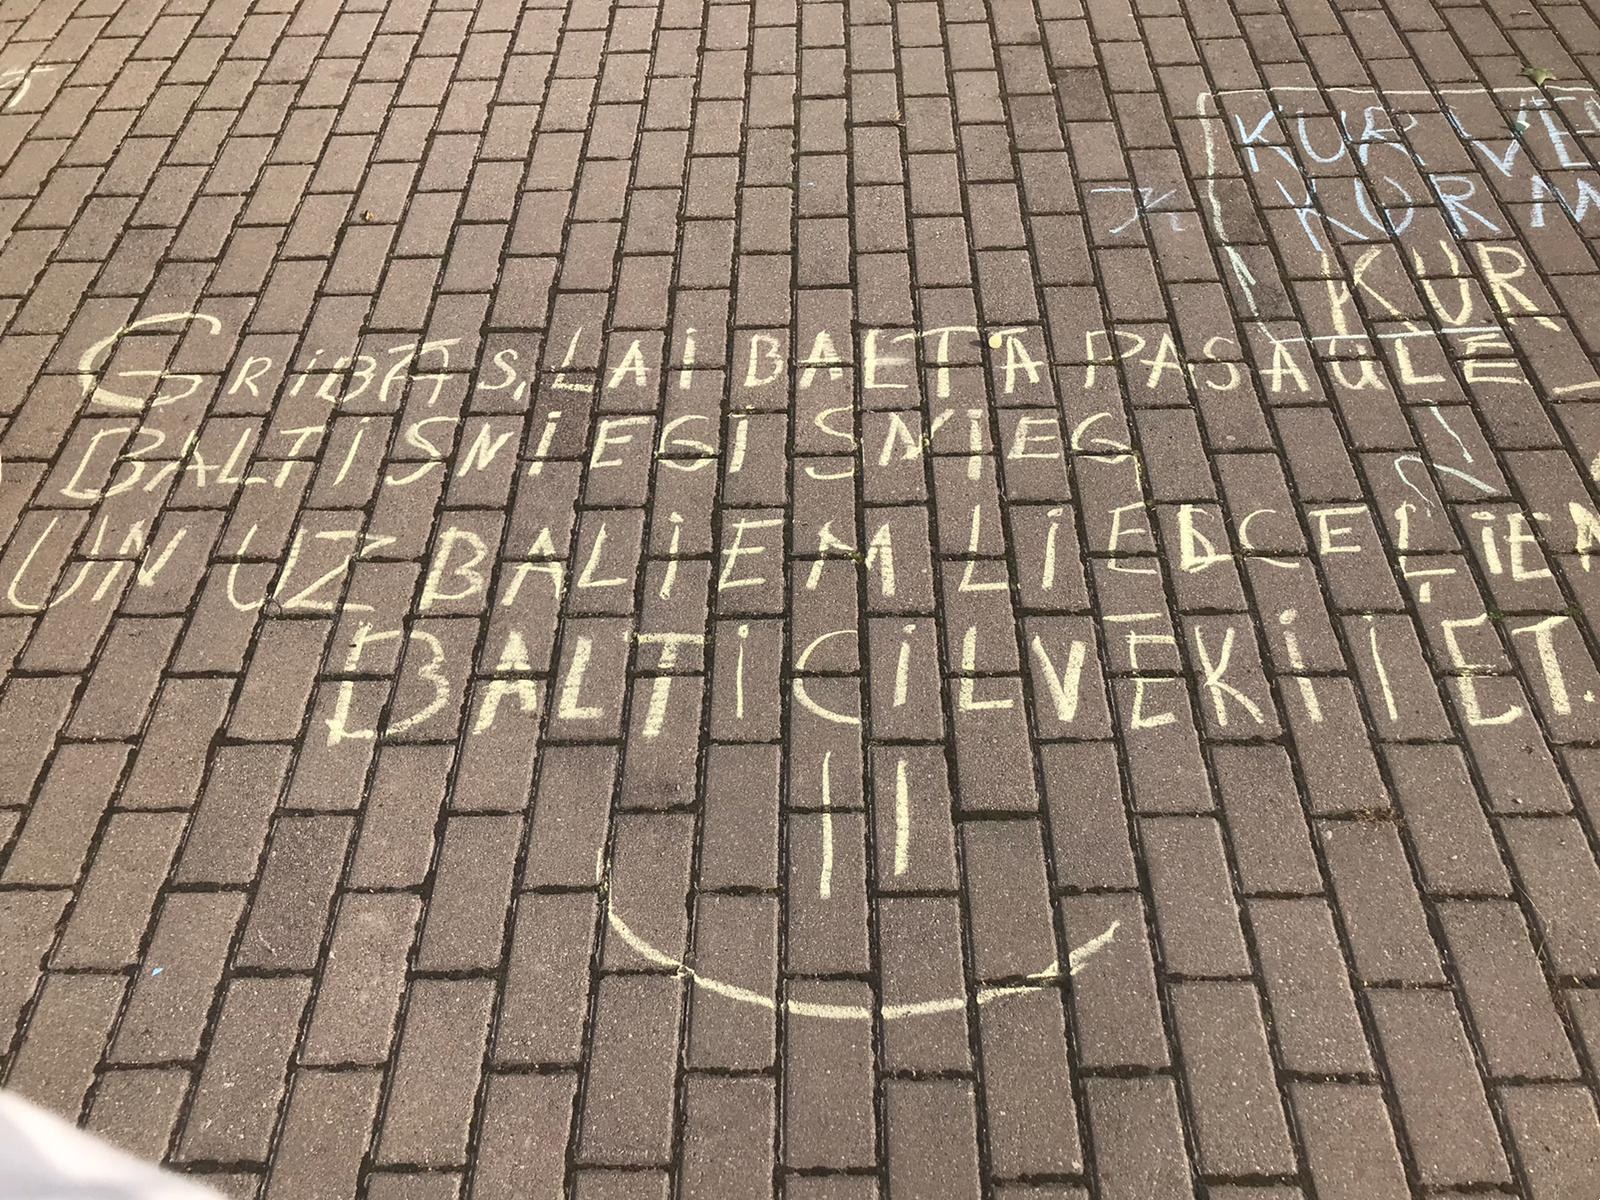 KUR
KUR
KUR
GRIBĀS, LAI BALTĀ PASAULĒ
BALTI SNIEGI SNIEG
UN UZ BALIEM LIEDCEĻIEM
BALTI CILVĒKI IET.